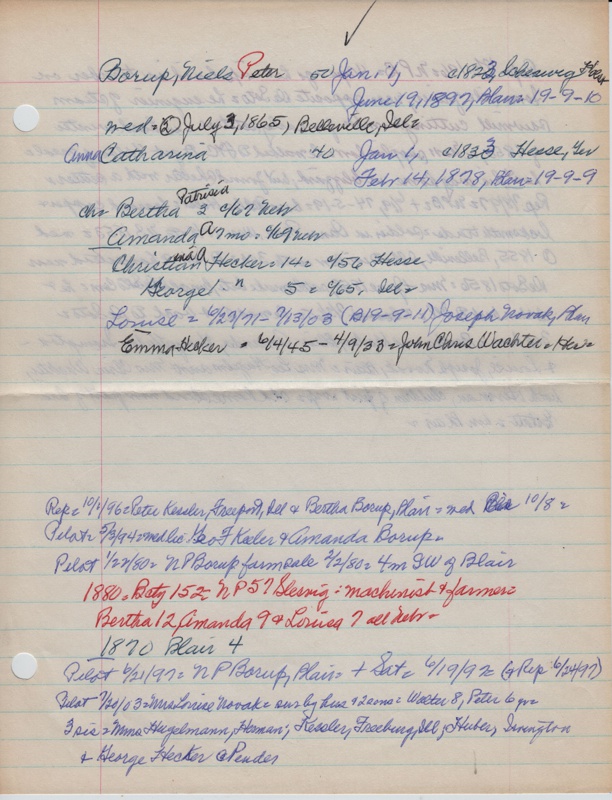 Borup, Niels Peter 50 Jan 1, c1823, Scheswig Holst
June 19, 1897, Blair= 19-9-10
med= ② July 3, 1865, Belleville, Ill=
Anna Catharina 40 Jan 1, c1833 Hesse, Ger
Feb 14, 1878, Blair= 19-9-9
ch= Bertha Patrisia 3 c/67 Nebr
Amanda A 7 mo= c/69 Nebr
Christian and A Hecker= 14= c/56 Hesse
George " 5= c/65, Ill=
Louise = 6/27/71- 7/13/03 (B19-9-11) Joseph Novak, Blair
Emma Hecker = 6/4/45 - 4/9/33= John Chris Wachter= Her=
Rep= 10/1/96= Peter Kessler, Freeport, Ill & Bertha Borup, Blair= med 10/8=
Pilot= 5/3/94= med lic Geo F Keeler & Amanda Borup=
Pilot 1/22/80= NP Borup farm sale 2/2/80= 4m SW of Blair
1880= Baty 152= NP 57 Slesvig= machinist & farmer=
Bertha 12 Amanda 9 & Louisa 7 all Nebr=
1870 Blair 4
Pilot 6/21/97= NP Borup, Blair= + Sat= 6/19/97= (& Rep= 6/24/97)
Pilot 7/20/03= Mrs Louise Novak= sur by hus & 2 sons= Walter 8, Peter 6 yr=
3 sis= Mrs Hugelmann, Herman; Kessler, Freeburg, Ill; Huber, Irvington
& George Hecker @ Pender